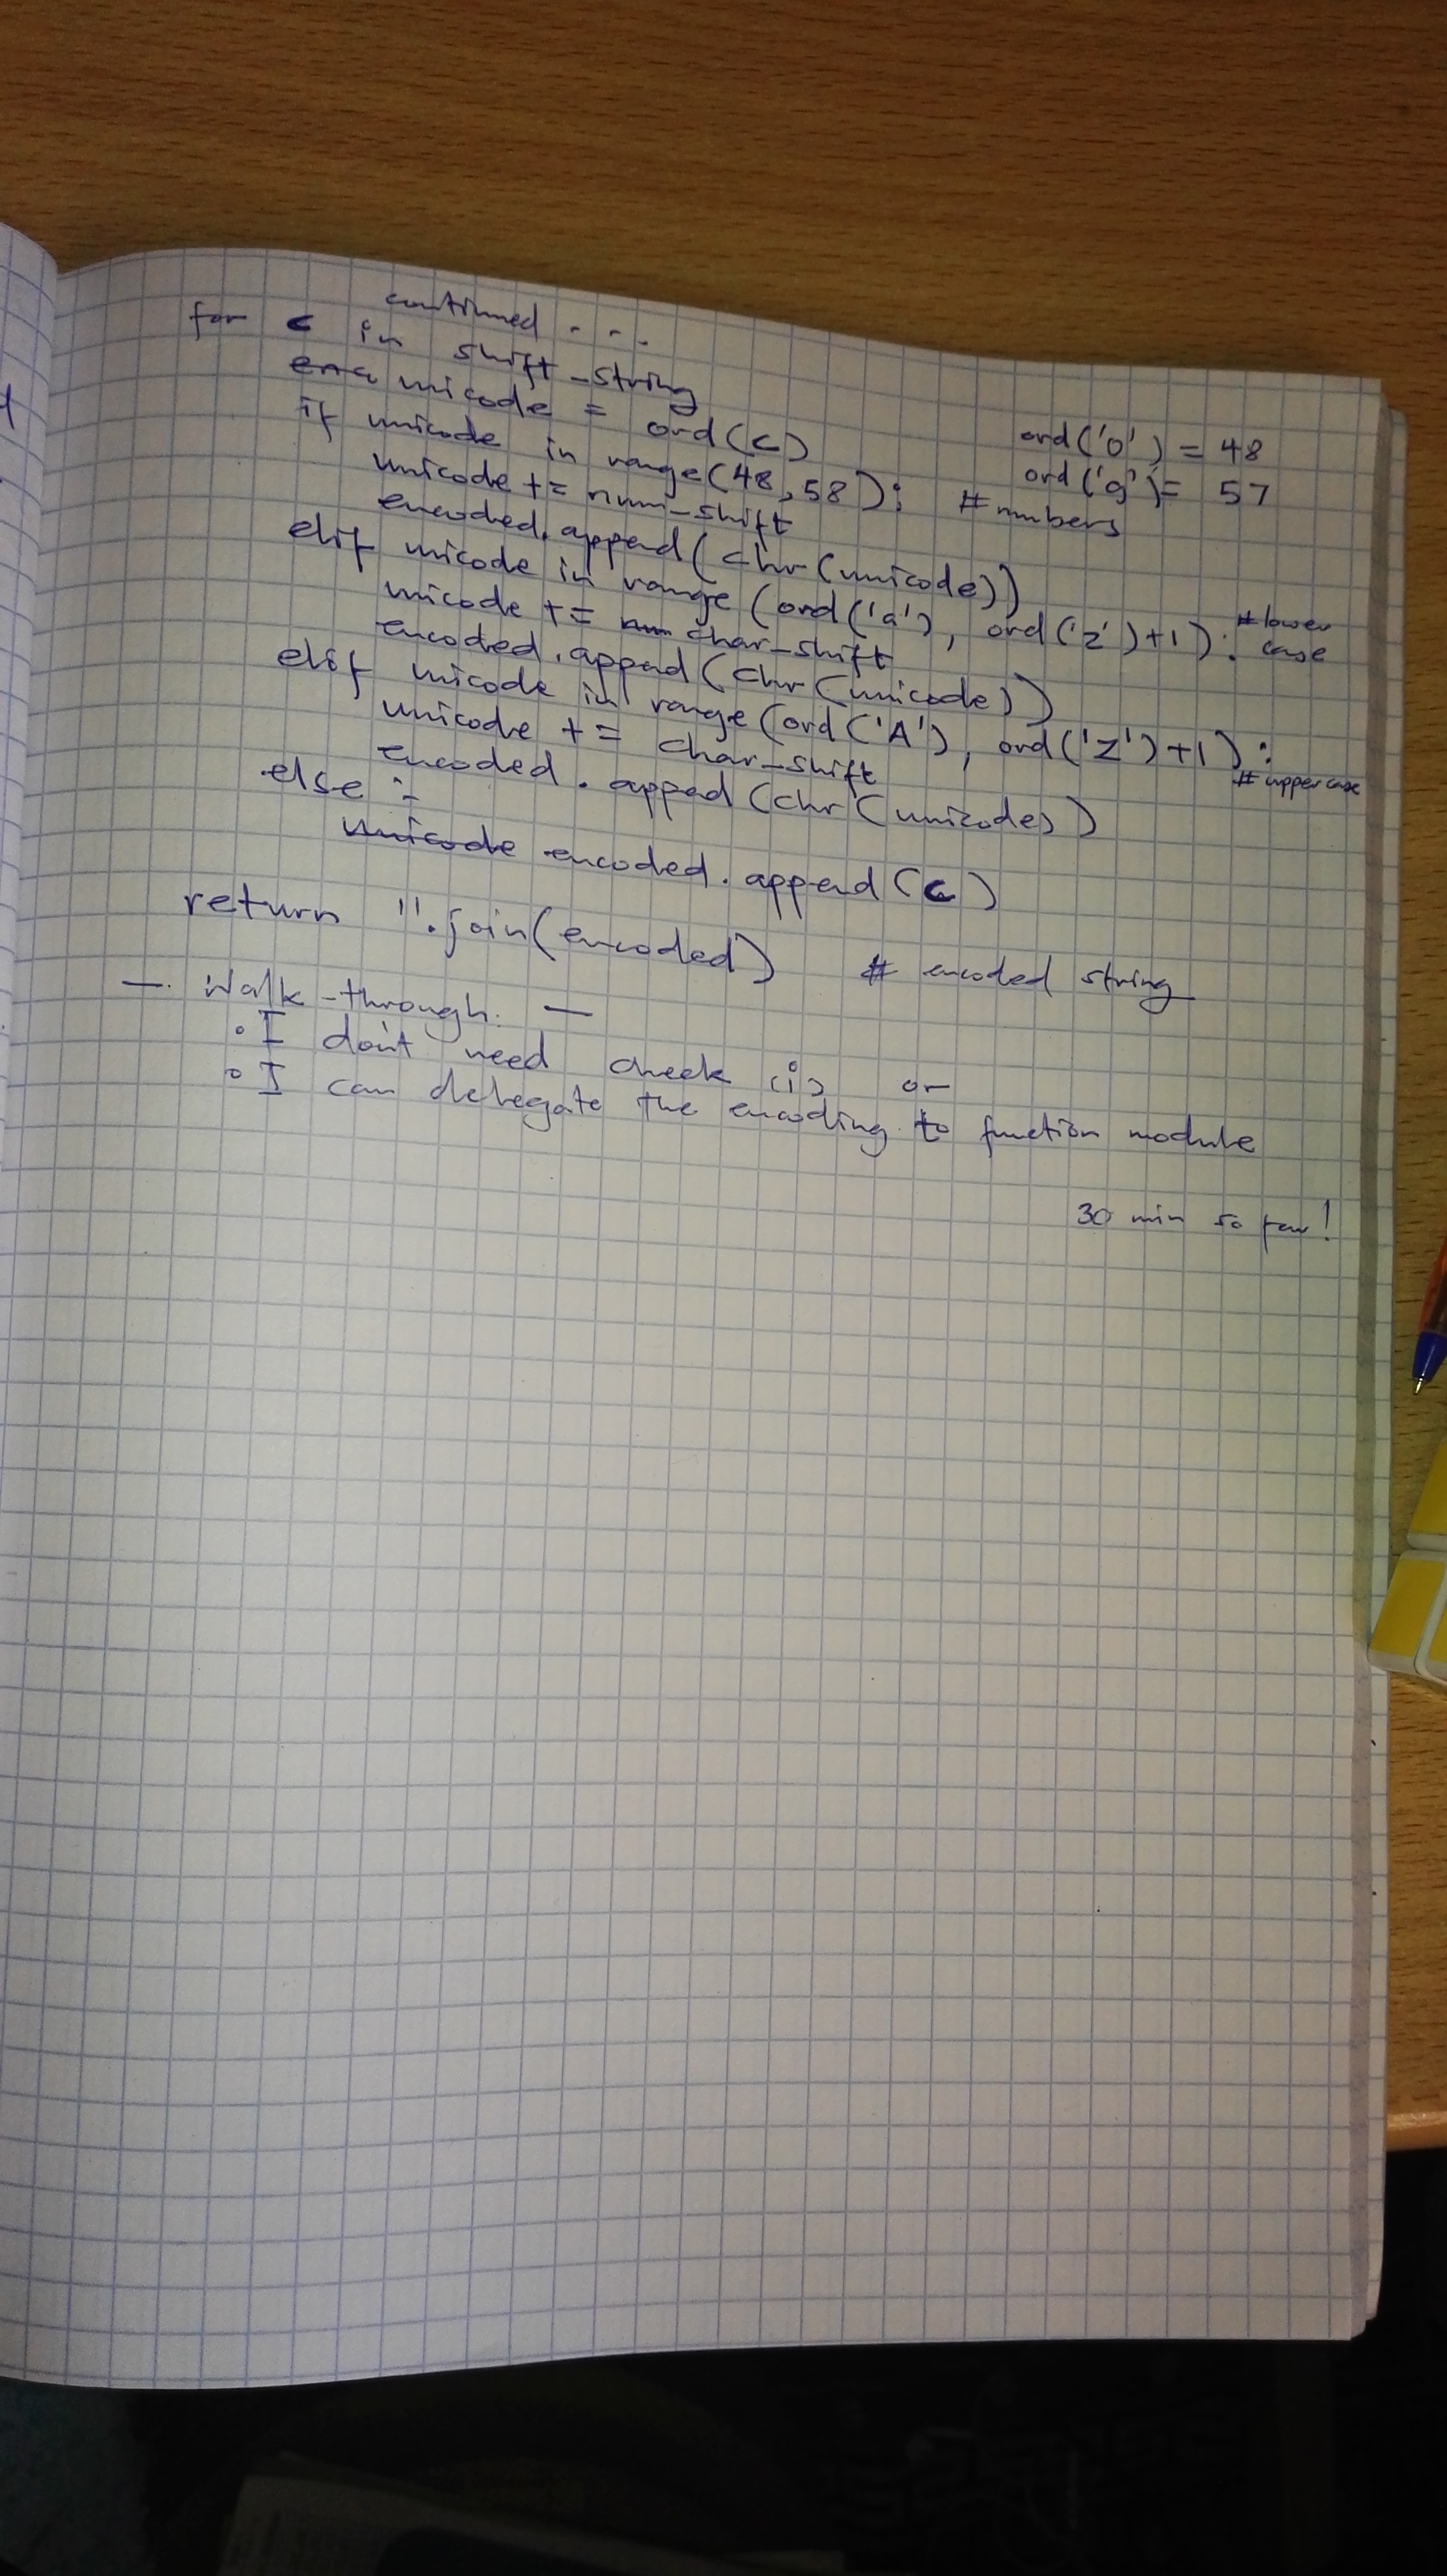 continued . . .
for c in shift_string
unicode = ord(c)
ord('0') = 48
if unicode in range(48, 58): # numbers
ord('9') = 57
unicode += num_shift
encoded.append(chr(unicode))
elif unicode in range(ord('a'), ord('z')+1): # lower case
unicode += num char_shift
encoded.append(chr(unicode))
elif unicode in range(ord('A'), ord('Z')+1): # uppercase
unicode += char_shift
encoded.append(chr(unicodes))
else :
unicode encoded.append(c)
return ''.join(encoded) # encoded string
— Walk-through. —
° I don't need check (i) or
° I can delegate the encoding to function module
30 min so far!